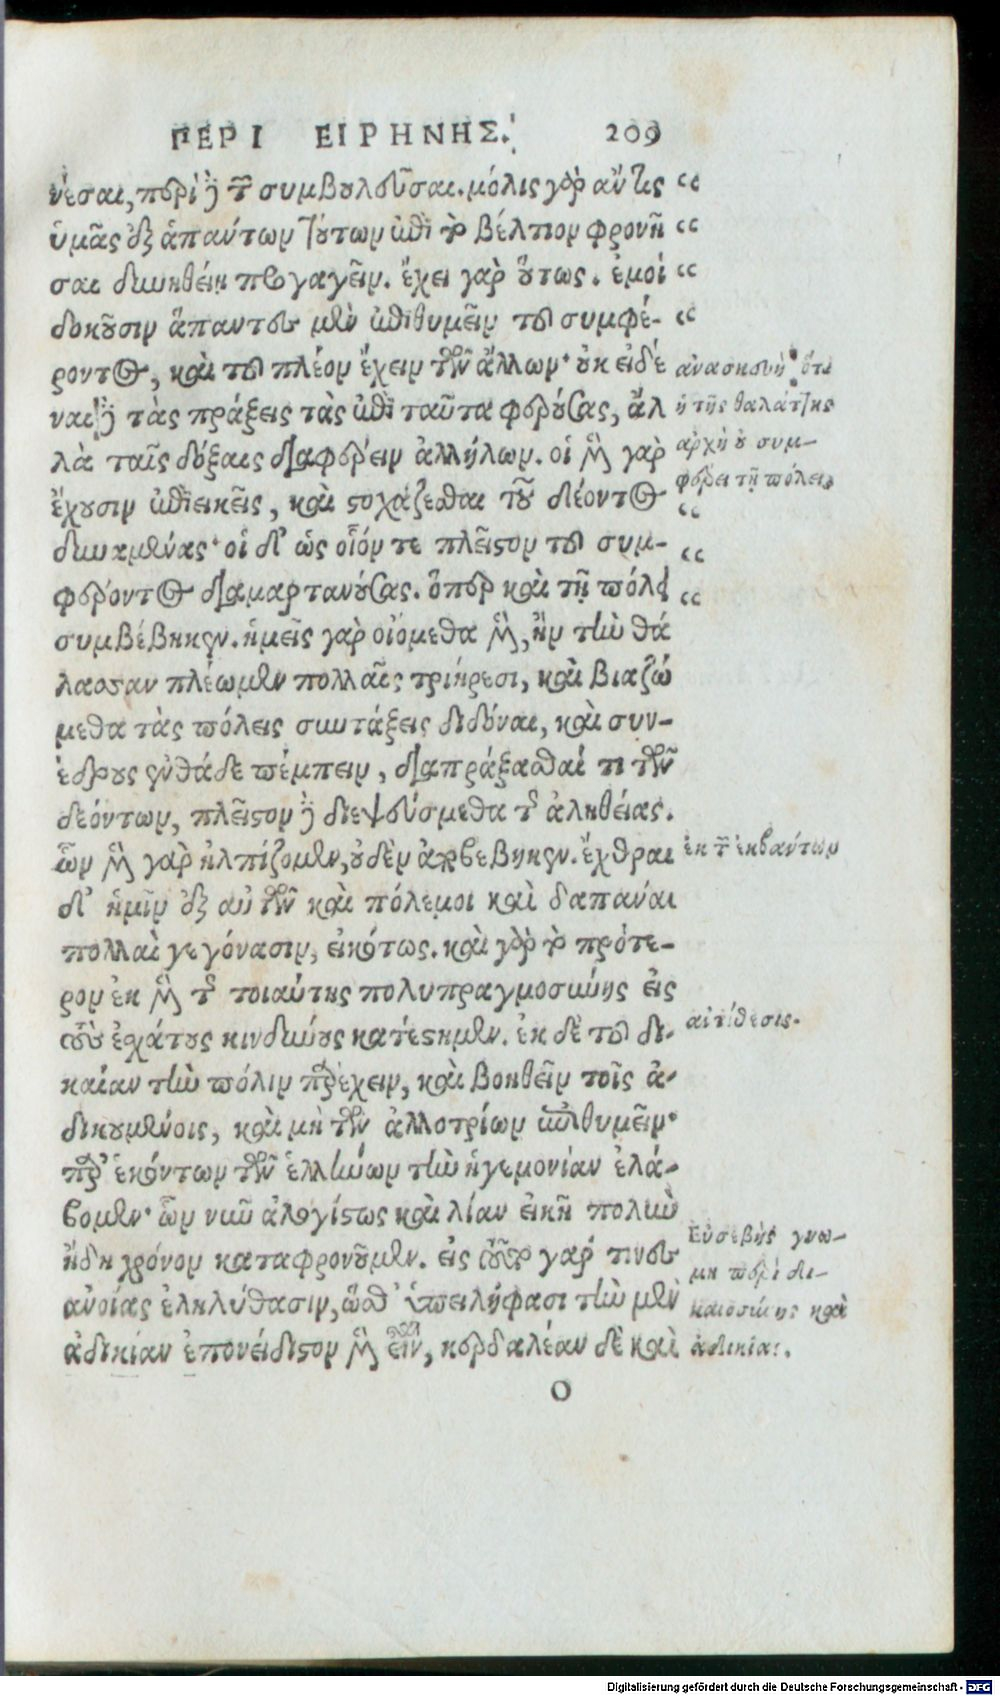 ΠΕΡΙ ΕΙΡΗΝΗΣ. 209
νέσαι, περὶ δὲ τῶν συμβουλεῦσαι. μόλις γὰρ ἄν τις “
ὑμᾶς ἐξ ἁπάντων τούτων ἐπὶ τὸ βέλτιον φρονῆ “
σαι δυνηθείη προαγαγεῖν. ἔχει γὰρ οὕτως. ἐμοὶ “
δοκοῦσιν ἅπαντες μὲν ἐπιθυμεῖν τοῦ συμφέ- “
ροντος, καὶ τοῦ πλέον ἔχειν τῶν ἄλλων· οὐκ εἰδέ
ναι δὲ τὰς πράξεις τὰς ἐπὶ ταῦτα φερούσας, ἀλ
λὰ ταῖς δόξαις διαφέρειν ἀλλήλων. οἱ μὲν γὰρ
ἔχουσιν ἐπιεικεῖς, καὶ στοχάζεσθαι τοῦ δέοντος
δυναμένας· οἱ δ' ὡς οἷόν τε πλεῖστον τοῦ συμ-
φέροντος διαμαρτανούσας. ὅπερ καὶ τῇ πόλει
συμβέβηκεν. ἡμεῖς γὰρ οἰόμεθα μὲν, ἢν τὴν θά
λασσαν πλέωμεν πολλαῖς τριήρεσι, καὶ βιαζώ
μεθα τὰς πόλεις συντάξεις διδόναι, καὶ συν-
έδρους ἐνθάδε πέμπειν, διαπράξασθαί τι τῶν
δεόντων, πλεῖστον δὲ διεψεύσμεθα τῆς ἀληθείας.
ὧν μὲν γὰρ ἠλπίζομεν, οὐδὲν ἀποβέβηκεν. ἔχθραι
δ' ἡμῖν ἐξ αὐτῶν καὶ πόλεμοι καὶ δαπάναι
πολλαὶ γεγόνασιν, εἰκότως. καὶ γὰρ τὸ πρότε-
ρον ἐκ μὲν τῆς τοιαύτης πολυπραγμοσύνης εἰς
τοὺς ἐσχάτους κινδύνους κατέστημεν. ἐκ δὲ τοῦ δι-
καίαν τὴν πόλιν παρέχειν, καὶ βοηθεῖν τοῖς ἀ-
δικουμένοις, καὶ μὴ τῶν ἀλλοτρίων ἐπιθυμεῖν·
παρ' ἑκόντων τῶν ἑλλήνων τὴν ἡγεμονίαν ἐλά-
βομεν· ὧν νῦν ἀλογίστως καὶ λίαν εἰκῆ πολὺν
ἤδη χρόνον καταφρονοῦμεν. εἰς τοῦτο γάρ τινες
ἀνοίας ἐληλύθασιν, ὥσθ' ὑπειλήφασι τὴν μὲν
ἀδικίαν ἐπονείδιστον μὲν εἶναι, κερδαλέαν δὲ καὶ
Ο
ἀνασκευὴ ὅτι
ἡ τῆς θαλάττης
ἀρχὴ οὐ συμ-
φέρει τῇ πόλει.
“
“
“
ἐκ τῶν ἐκβάντων
ἀντίθεσις.
Εὐσεβὴς γνώ-
μη περὶ δι-
καιοσύνης καὶ
ἀδικίας.
Digitalisierung gefördert durch die Deutsche Forschungsgemeinschaft - DFG